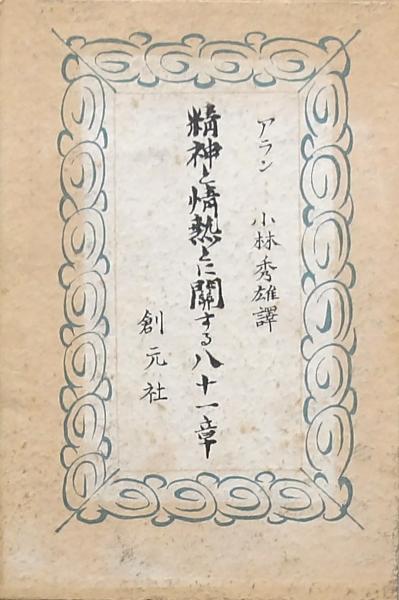 アラン 小林秀雄譯
精神と情熱とに關する八十一章
創元社